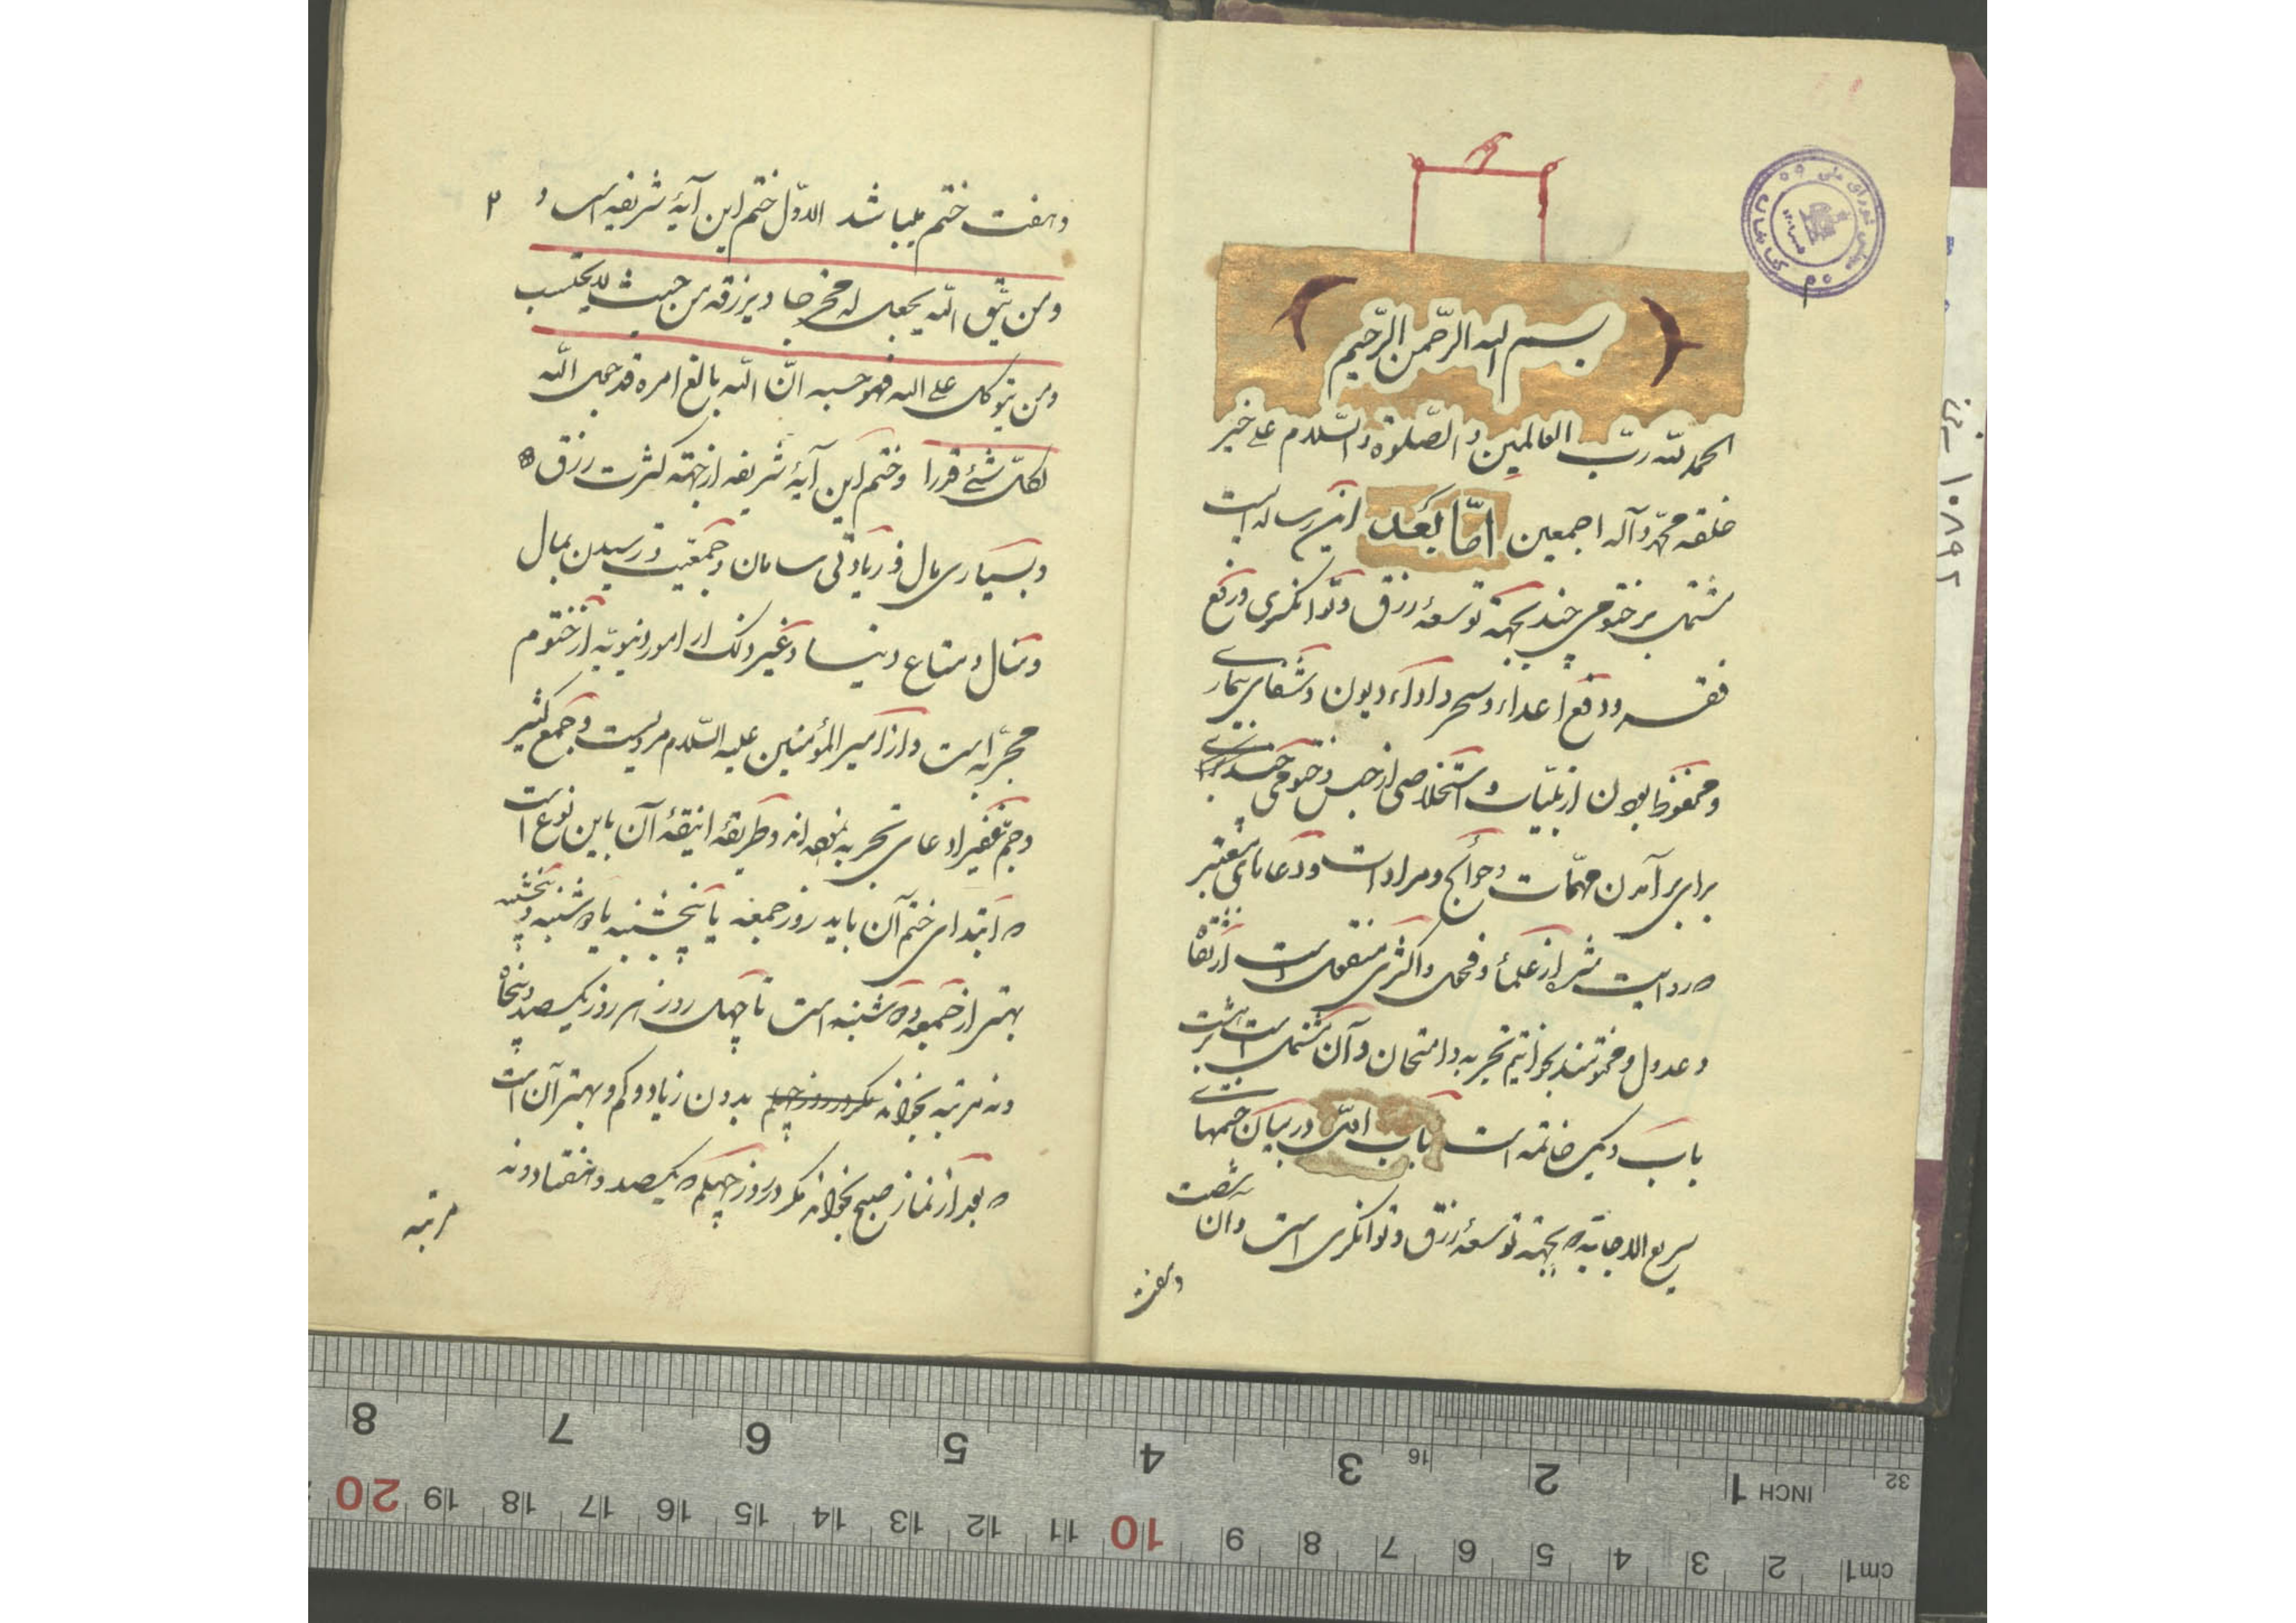 بسم الله الرّحمن الرّحیم
الحمد للّه ربّ العالمین و الصّلوة و السّلام علی خیر
خلقه محمّد و آله اجمعین امّا بعد این رساله ایست
مشتمل بر ختومی چند بجهة توسعهٔ رزق و توانگری و رفع
فقر و دفع اعداء و سحر و اداء دیون و شفای بیماری
و محفوظ بودن از بلیّات و استخلاصی از حبس و ختومی چند برای
برای بر آمدن مهمّات و حوائج و مرادات و دعاهای معتبر
که روایت از علماء و اکثری منقول است از ثقات
و عدول و تجربه و امتحان و آن مشتمل است بر هشت
باب و یک خاتمه است باب اوّل در بیان ختمهای
سریع الاجابة که بجهة توسعهٔ رزق و توانگری است و آن شصت
و هفت
۱
کتابخانه مجلس شورای ملی
۱۰۸۹۲
۲
و هفت ختم میباشد الاوّل ختم این آیهٔ شریفه است و
و من یتّق اللّه یجعل له مخرجا و یرزقه من حیث لا یحتسب
و من یتوکل علی اللّه فهو حسبه انّ اللّه بالغ امره قد جعل اللّه
لکلّ شئ قدرا و ختم این آیهٔ شریفه از جهته کثرت رزق
و بسیاری مال و زیادتی سامان و جمعیّت و رسیدن بمال
و منال و متاع دنیا و غیر ذلک از امور دنیویّه از ختوم
مجرّبه است و از امیر المؤمنین علیه السّلام مرویست و جمع کثیر
و جمّ غفیر ادعای تجربه نموده‌اند و طریقهٔ انیقهٔ آن باین نوع است
که ابتدای ختم آن باید روز جمعه یا پنجشنبه یا دوشنبه و پنجشنبه
بهتر از جمعه و دوشنبه است تا چهل روز هر روز یکصد و پنجاه
و نه مرتبه بخواند مگر در روز چهلم بدون زیاد و کم و بهتر آن است
که بعد از نماز صبح بخواند مگر در روز چهلم که یکصد و هفتاد و نه
مرتبه
8 7 6 5 4 3 16 2 1 INCH 32
20 19 18 17 16 15 14 13 12 11 10 9 8 7 6 5 4 3 2 1 cm